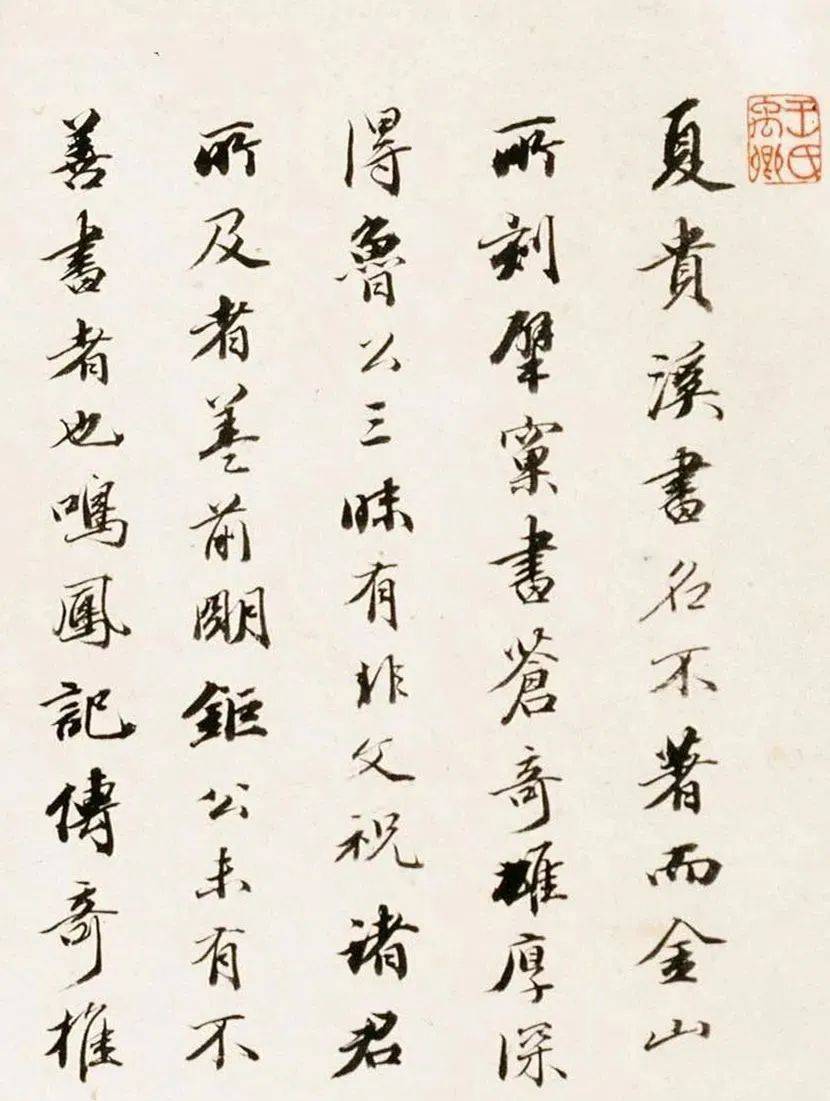 王氏禹卿
夏貴溪書名不著而金山
所刻擘窠書蒼奇雄厚深
得魯公三昧有非文祝諸君
所及者蓋前明鉅公未有不
善書者也鳴鳳記傳奇推